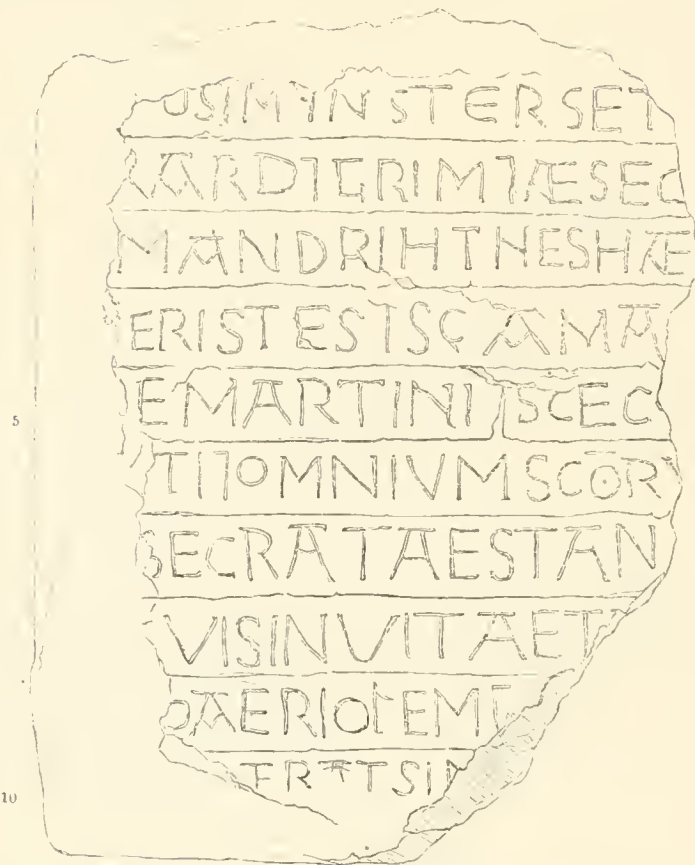 USIMYNSTERSET
RARD⁊GRIM⁊ÆSEC
MANDRIHTNESHÆ
ERISTES⁊SCAMA
5 EMARTINI⁊SCEC
TI⁊OMNIVMSCOR
SECRATAESTAN
VISINVITAET
AERIOLEM
10 TRATSIN